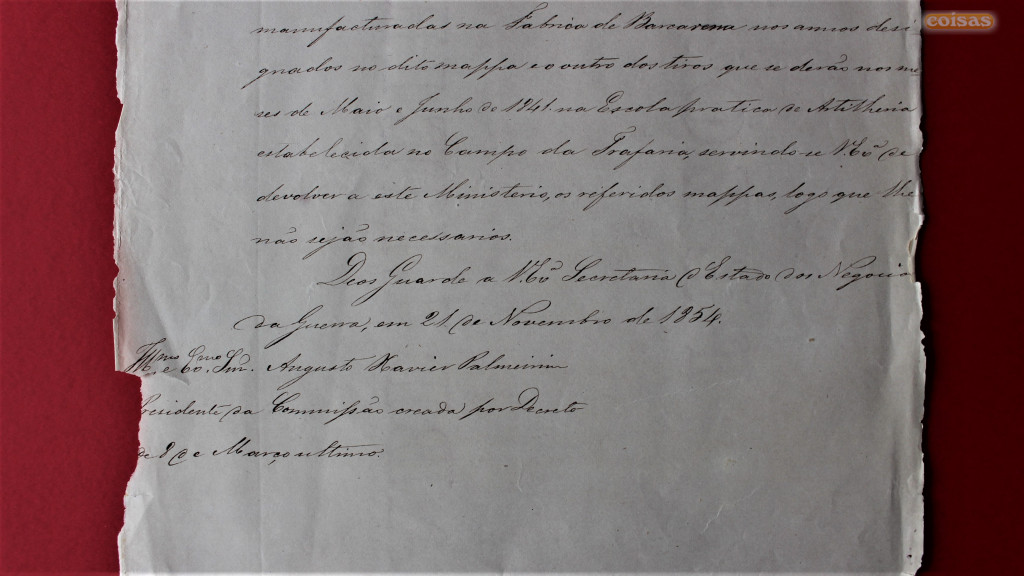 coisas
manufacturadas na Fabrica de Barcarena nos annos desi
gnados no dito mappa e o outro dos tiros que se derão nos me
zes de Maio e Junho de 1841 na Escola pratica de Artilheria
estabelecida no Campo da Trafaria, servindo-se V.Exª de
devolver a este Ministerio, os referidos mappas, logo que lhe
não sejão necessarios.
Deos Guarde a V.Exª Secretaria d'Estado dos Negocios
da Guerra, em 21 de Novembro de 1854.
Illmo e Exmo Snr. Augusto Xavier Palmeirim
Presidente da Commissão creada por Decreto
de 8 de Março ultimo.